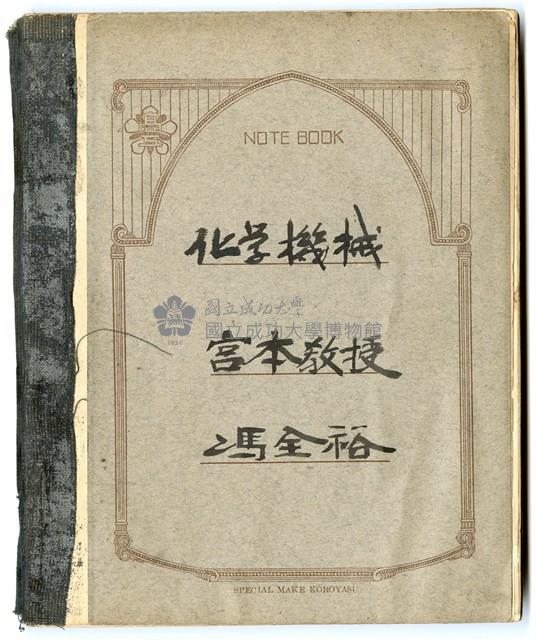 NOTE BOOK
化学機械
國立成功大學
國立成功大學博物館
1931
宮本教授
馮全裕
SPECIAL MAKE KOKOYASU